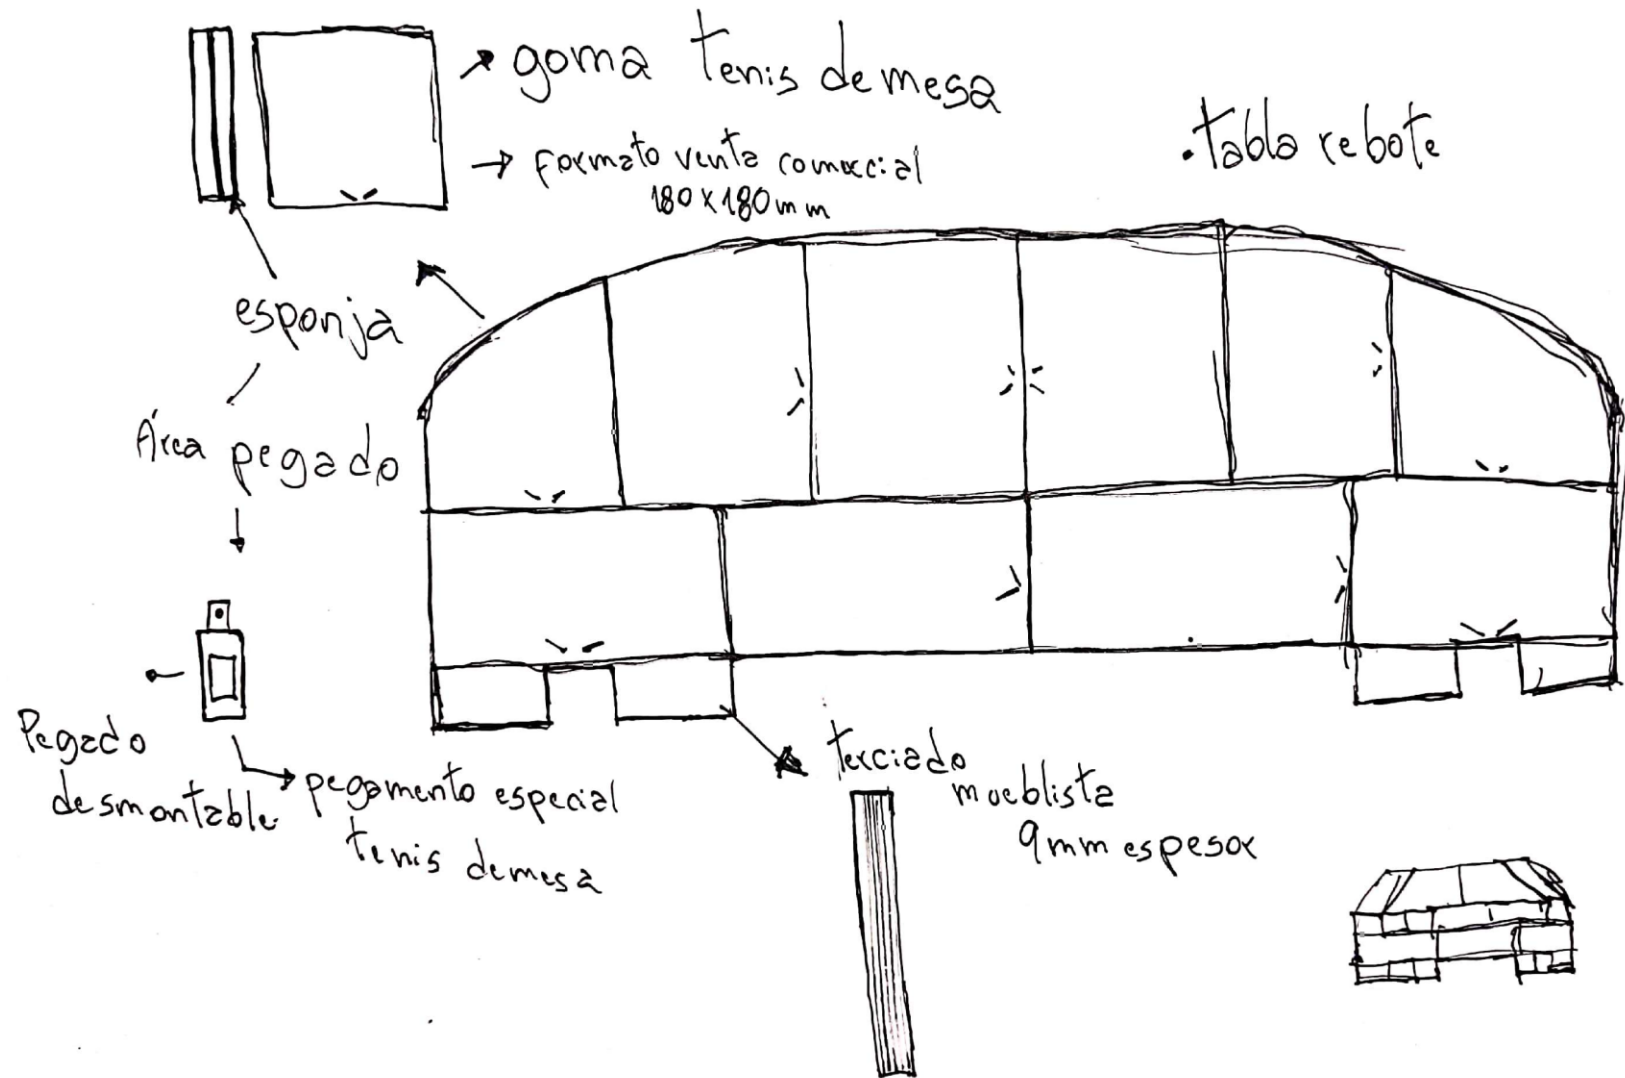 goma tenis de mesa
→ Formato venta comercial
180 x 180 mm
.tabla rebote
esponja
Área pegado
Pegado
desmontable.
pegamento especial
tenis de mesa
terciado
mueblista
9mm espesor